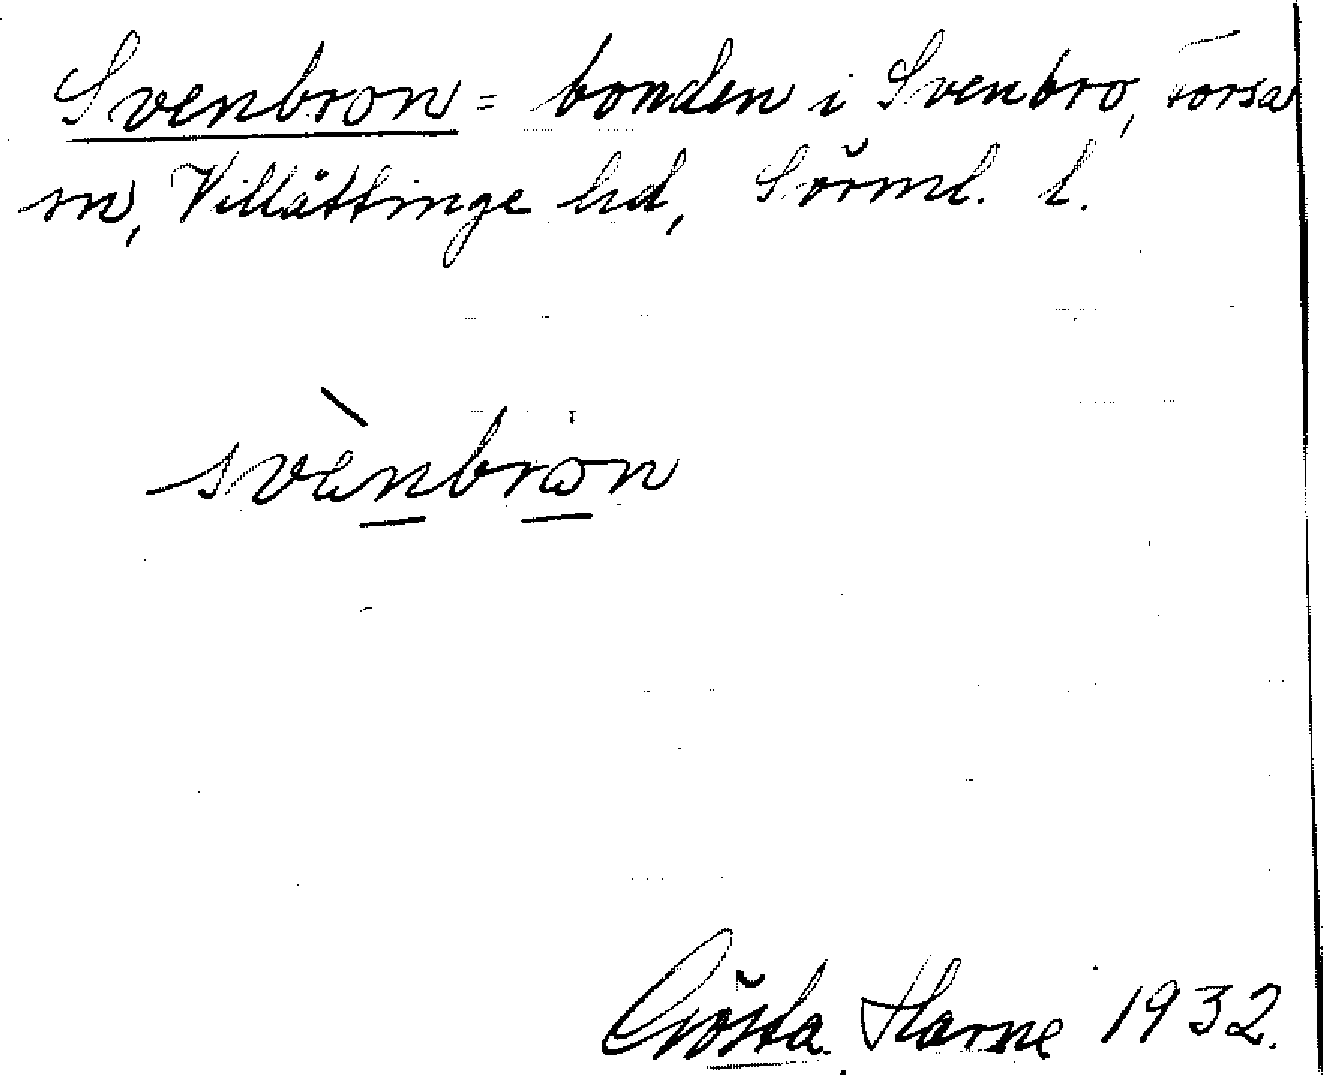 Svenbron = bonden i Svenbro, Torsa
sn, Villåttinge hd, Sörml. l.
svènbron
Gösta Harne 1932.